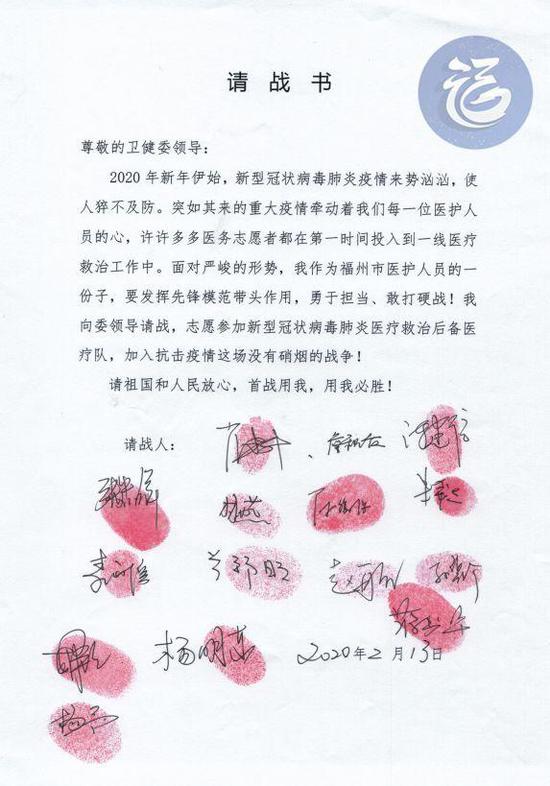 请战书
尊敬的卫健委领导：
2020年新年伊始，新型冠状病毒肺炎疫情来势汹汹，使
人猝不及防。突如其来的重大疫情牵动着我们每一位医护人
员的心，许许多多医务志愿者都在第一时间投入到一线医疗
救治工作中。面对严峻的形势，我作为福州市医护人员的一
份子，要发挥先锋模范带头作用，勇于担当、敢打硬战！我
向委领导请战，志愿参加新型冠状病毒肺炎医疗救治后备医
疗队，加入抗击疫情这场没有硝烟的战争！
请祖国和人民放心，首战用我，用我必胜！
请战人：
杨明东 2020年2月13日